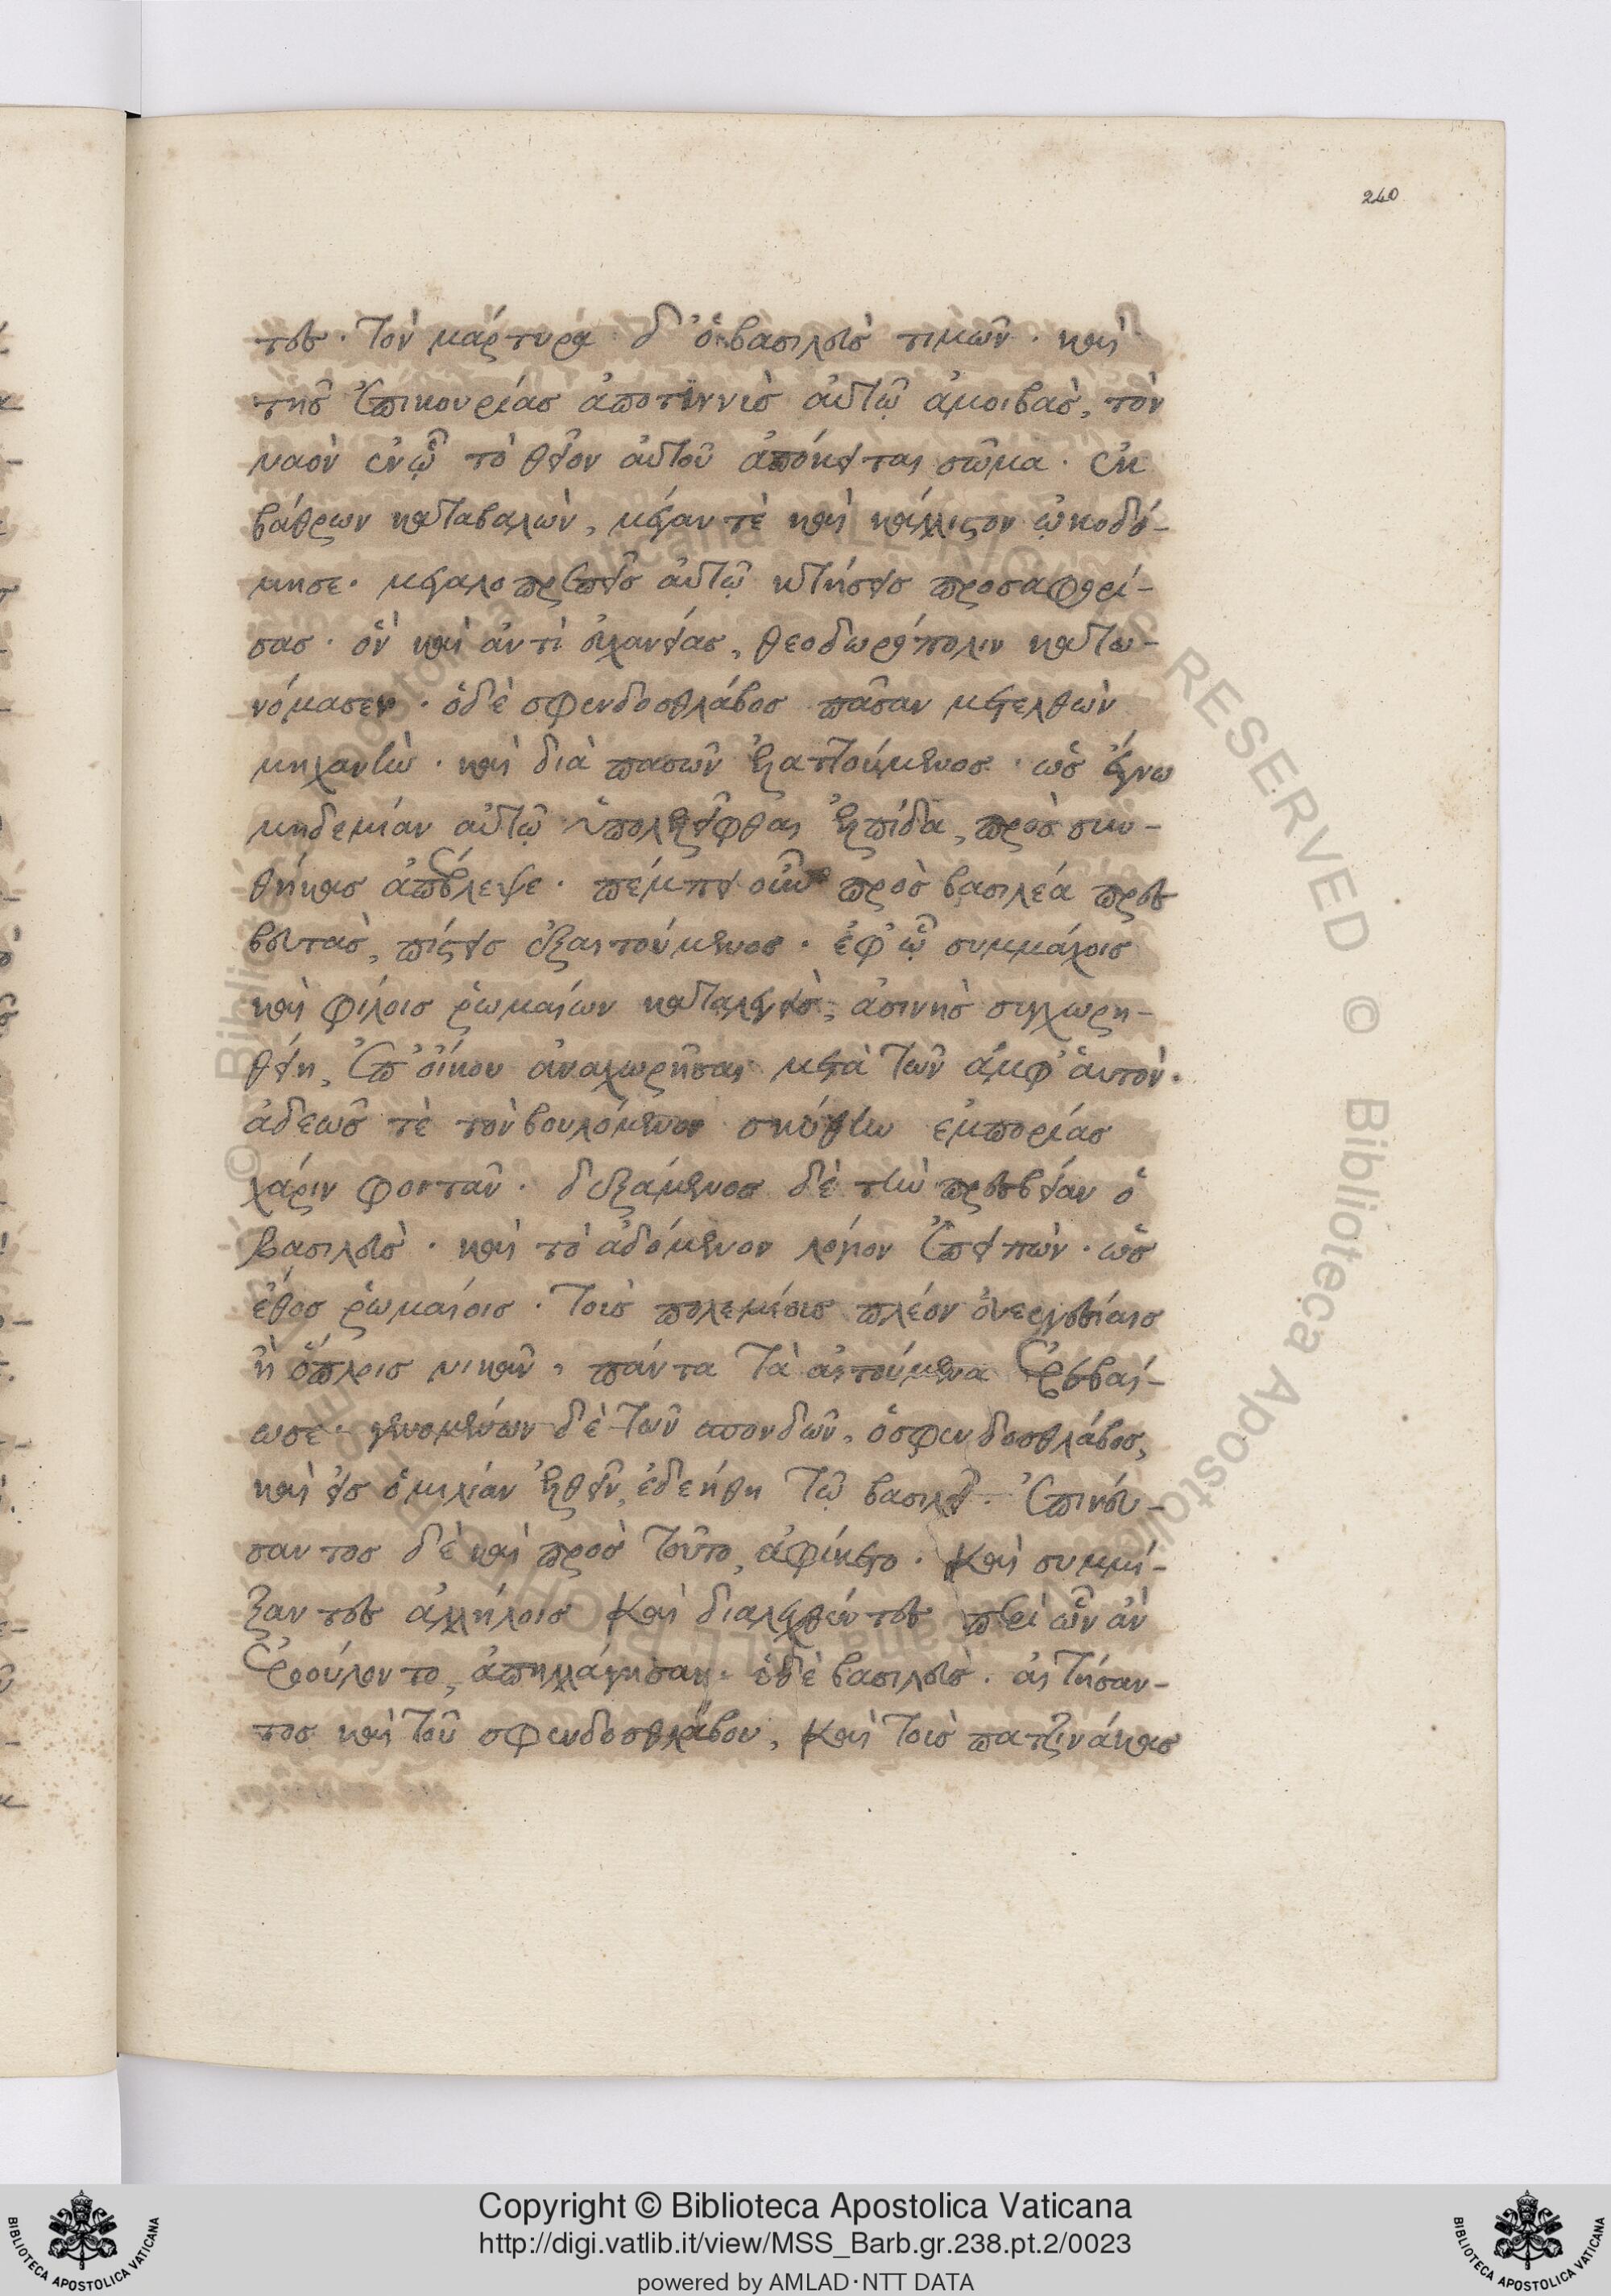 240
τες· τὸν μάρτυρα δ' ὁ βασιλεὺς τιμῶν· καὶ
τῆς ἐπικουρίας ἀποτιννὺς αὐτῷ ἀμοιβὰς, τὸν
ναὸν ἐν ᾧ τὸ θεῖον αὐτοῦ ἀπόκειται σῶμα· ἐκ
βάθρων καταβαλὼν, μέγαν τὲ καὶ κάλλιστον ᾠκοδό-
μησε· μεγαλοπρεπεῖς αὐτῷ κτήσεις προσαφορί-
σας· ὃν καὶ ἀντὶ εὐχανείας, θεοδωρόπολιν κατω-
νόμασεν· ὁ δὲ σφενδοσθλάβος πᾶσαν μετελθὼν
μηχανὴν· καὶ διὰ πασῶν ἐλαττούμενος· ὡς ἔγνω
μηδεμίαν αὐτῷ ὑπολελεῖφθαι ἐλπίδα, πρὸς συν-
θήκας ἀπέβλεψε· πέμπει οὖν πρὸς βασιλέα πρεσ
βευτὰς, πίστεις ἐξαιτούμενος· ἐφ' ᾧ συμμάχοις
καὶ φίλοις ῥωμαίων καταλεγεὶς, ἀσινὴς συγχωρη-
θείη, ἐπ' οἴκου ἀναχωρῆσαι μετὰ τῶν ἀμφ' αὐτὸν·
ἀδεῶς τὲ τὸν βουλόμενον σκύθην ἐμπορίας
χάριν φοιτᾶν· δεξάμενος δὲ τὴν πρεσβείαν ὁ
βασιλεὺς· καὶ τὸ ἀδόμενον λόγιον ἐπειπὼν· ὡς
ἔθος ῥωμαίοις· τοὺς πολεμίους πλέον εὐεργεσίαις
ἢ ὅπλοις νικᾶν, πάντα τὰ αἰτούμενα ἐβεβαί-
ωσε· γενομένων δὲ τῶν σπονδῶν, ὁ σφενδοσθλάβος,
καὶ εἰς ὁμιλίαν ἐλθεῖν, ἐδεήθη τῷ βασιλεῖ· ἐπινεύ-
σαντος δὲ καὶ πρὸς τοῦτο, ἀφίκετο· καὶ συμμί-
ξαντες ἀλλήλοις καὶ διαλεχθέντες περὶ ὧν ἂν
ἐβούλοντο, ἀπηλλάγησαν· ὁ δὲ βασιλεὺς· αἰτήσαν-
τος καὶ τοῦ σφενδοσθλάβου, καὶ τοῖς πατζινάκας
Copyright © Biblioteca Apostolica Vaticana
http://digi.vatlib.it/view/MSS_Barb.gr.238.pt.2/0023
powered by AMLAD·NTT DATA